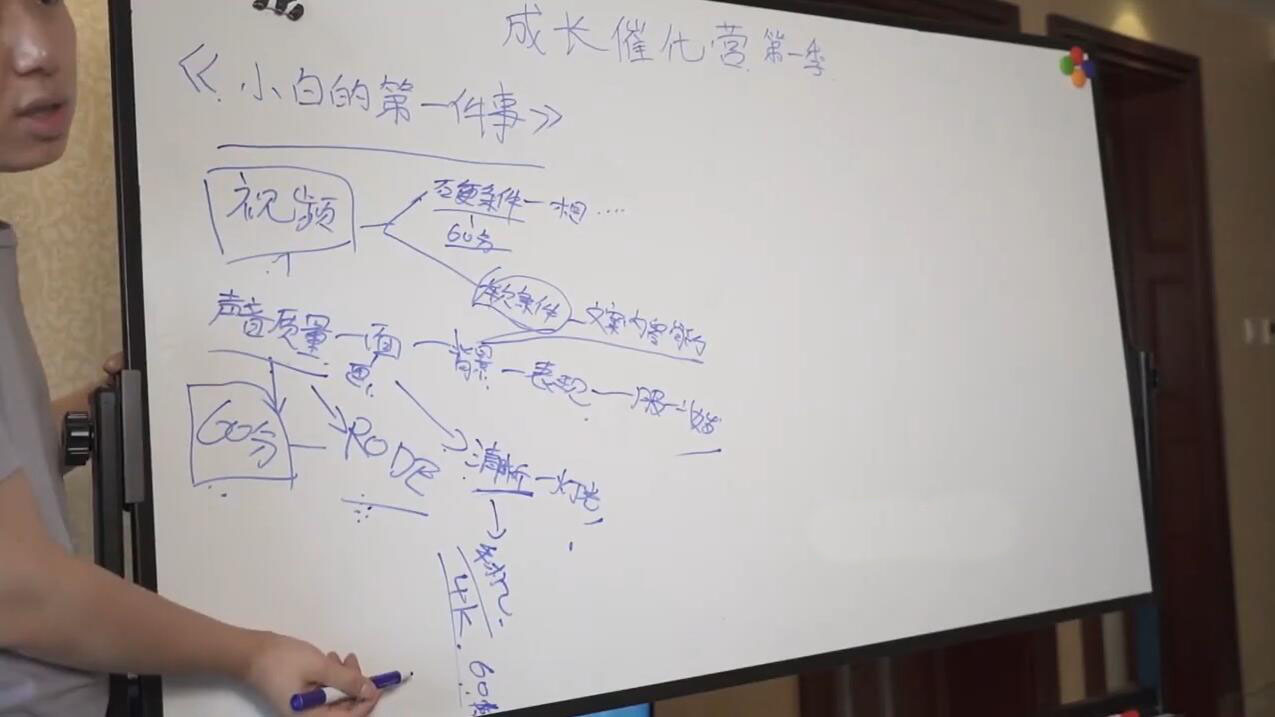 成长催化营第一季
《小白的第一件事》
视频
条件一相....
60分
条件
文案内容
声音质量一画面一背景一表现一服
60分
RODE
清晰一灯光
4K
60